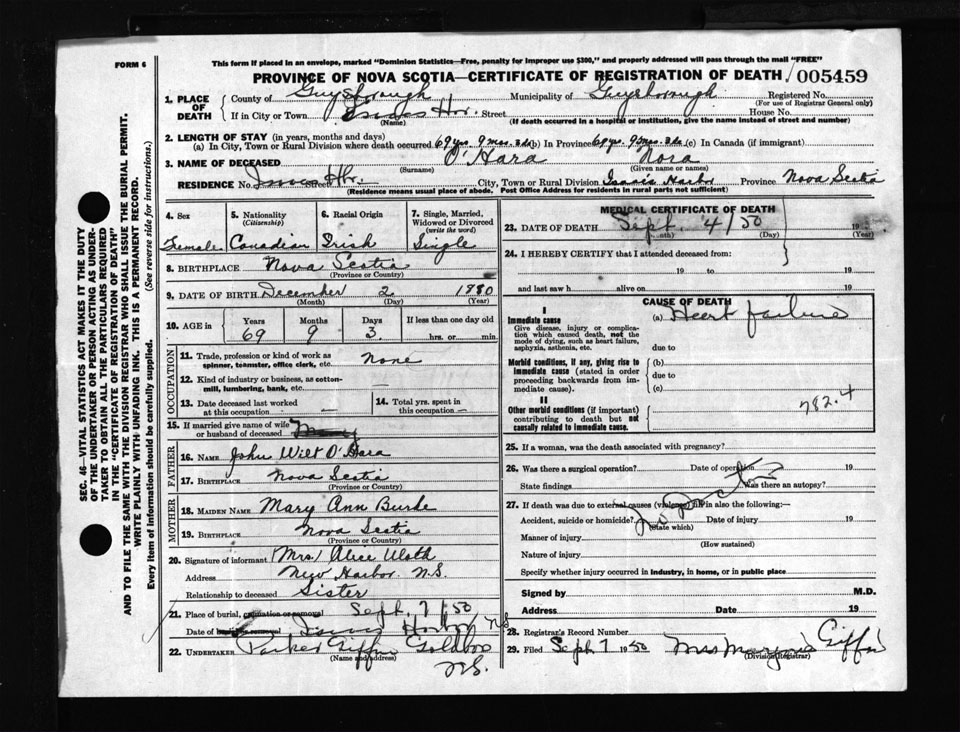 FORM 6
This form if placed in an envelope, marked "Dominion Statistics—Free, penalty for improper use $300," and properly addressed will pass through the mail "FREE"
PROVINCE OF NOVA SCOTIA—CERTIFICATE OF REGISTRATION OF DEATH 005459
1. PLACE OF DEATH { County of Guysborough Municipality of Guysborough Registered No.
(For use of Registrar General only)
If in City or Town Isaacs Hbr. Street House No.
(Name) (If death occurred in a hospital or institution, give the name instead of street and number)
2. LENGTH OF STAY (in years, months and days)
(a) In City, Town or Rural Division where death occurred 69 yrs. 9 mos. 3 ds (b) In Province 69 yrs. 9 mos. 3 ds (c) In Canada (if immigrant)
3. NAME OF DECEASED O'Hara Nora
(Surname) (Given name or names)
RESIDENCE No. Isaacs Hbr. Street City, Town or Rural Division Isaacs Harbor Province Nova Scotia
(Residence means usual place of abode. Post Office Address for residents in rural parts not sufficient)
SEC. 46—VITAL STATISTICS ACT MAKES IT THE DUTY
OF THE UNDERTAKER OR PERSON ACTING AS UNDER-
TAKER TO OBTAIN ALL THE PARTICULARS REQUIRED
IN THE "CERTIFICATE OF REGISTRATION OF DEATH"
AND TO FILE THE SAME WITH THE DIVISION REGISTRAR WHO SHALL ISSUE THE BURIAL PERMIT.
WRITE PLAINLY WITH UNFADING INK. THIS IS A PERMANENT RECORD.
Every item of information should be carefully supplied. (See reverse side for instructions.)
4. Sex 5. Nationality (Citizenship) 6. Racial Origin 7. Single, Married, Widowed or Divorced (write the word)
Female Canadian Irish Single
8. BIRTHPLACE Nova Scotia
(Province or Country)
9. DATE OF BIRTH December 2 1880
(Month) (Day) (Year)
10. AGE in { Years Months Days If less than one day old
69 9 3. hrs. or min.
OCCUPATION
11. Trade, profession or kind of work as spinner, teamster, office clerk, etc. None
12. Kind of industry or business, as cotton-mill, lumbering, bank, etc. —
13. Date deceased last worked at this occupation — 14. Total yrs. spent in this occupation —
15. If married give name of wife or husband of deceased
FATHER
16. NAME John Wilt O'Hara
17. BIRTHPLACE Nova Scotia
(Province or Country)
MOTHER
18. MAIDEN NAME Mary Ann Burke
19. BIRTHPLACE Nova Scotia
(Province or Country)
20. Signature of informant (Mrs) Alice
Address New Harbor N.S.
Relationship to deceased Sister
21. Place of burial, cremation or removal Sept. 7/50
Date of burial Isaacs Harbor NS
22. UNDERTAKER Parker Giffin Goldboro
(Name and address) N.S.
MEDICAL CERTIFICATE OF DEATH
23. DATE OF DEATH Sept. 4/50 19
(Month) (Day) (Year)
24. I HEREBY CERTIFY that I attended deceased from:
19 to 19
and last saw h alive on 19
CAUSE OF DEATH
I
Immediate cause (a) Heart failure
Give disease, injury or complication which caused death, not the mode of dying, such as heart failure, asphyxia, asthenia, etc. due to
Morbid conditions, if any, giving rise to immediate cause (stated in order proceeding backwards from immediate cause). (b)
due to
(c)
II
Other morbid conditions (if important) contributing to death but not causally related to immediate cause. 782.4
25. If a woman, was the death associated with pregnancy?
26. Was there a surgical operation? Date of operation 19
State findings Was there an autopsy?
27. If death was due to external causes (violence) fill in also the following:—
No Doctor
Accident, suicide or homicide? Date of injury 19
(State which)
Manner of injury
(How sustained)
Nature of injury
Specify whether injury occurred in industry, in home, or in public place
Signed by M.D.
Address Date 19
28. Registrar's Record Number
29. Filed Sept 7 1950 Mrs Marjorie Giffin
(Division Registrar)